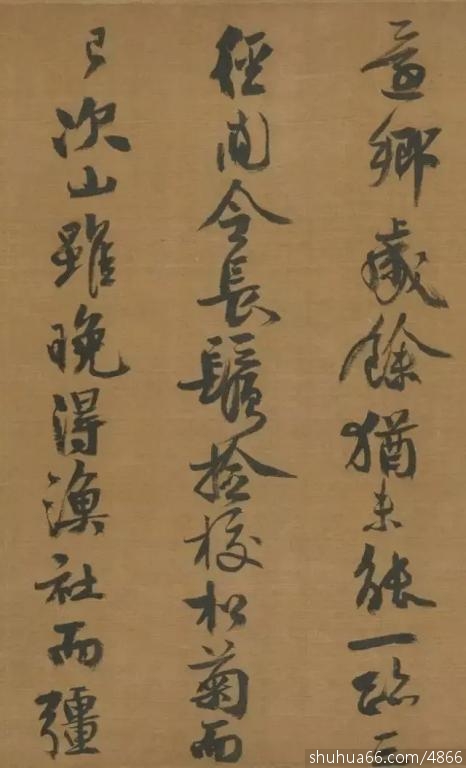 還鄉歲餘猶未能一臨三
徑間令長鬚撿校松菊而
已次山雖晚得漁社而疆
shuhua66.com/4866